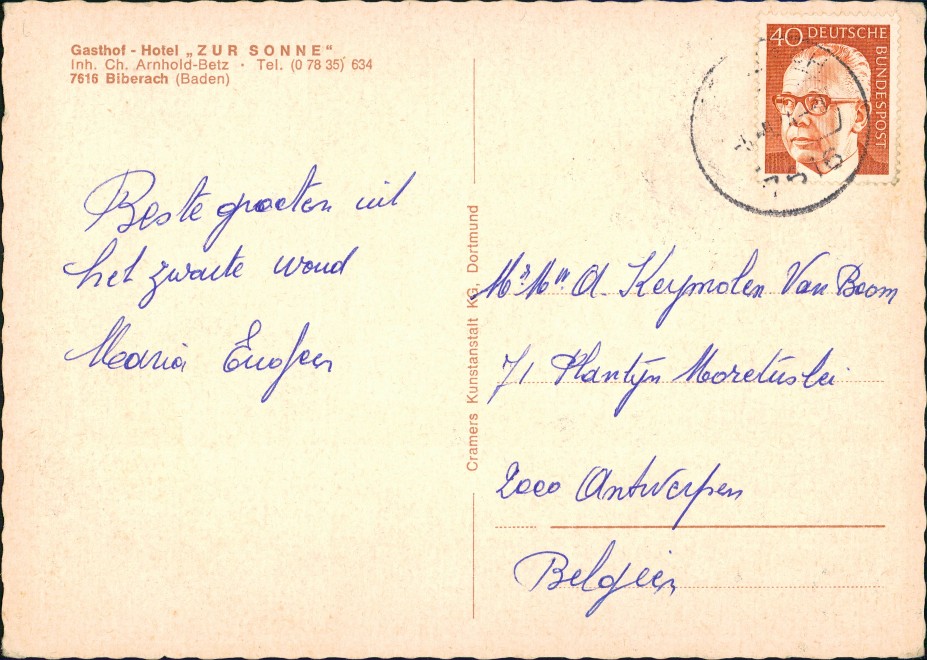 Gasthof - Hotel „ZUR SONNE"
Inh. Ch. Arnhold-Betz · Tel. (0 78 35) 634
7616 Biberach (Baden)
Beste groeten uit
het zwarte woud
Maria Eugeen
Cramers Kunstanstalt KG. Dortmund
40 DEUTSCHE
BUNDESPOST
Mr Mm A. Keymolen Van Boom
71 Plantijn Moretuslei
2000 Antwerpen
Belgien